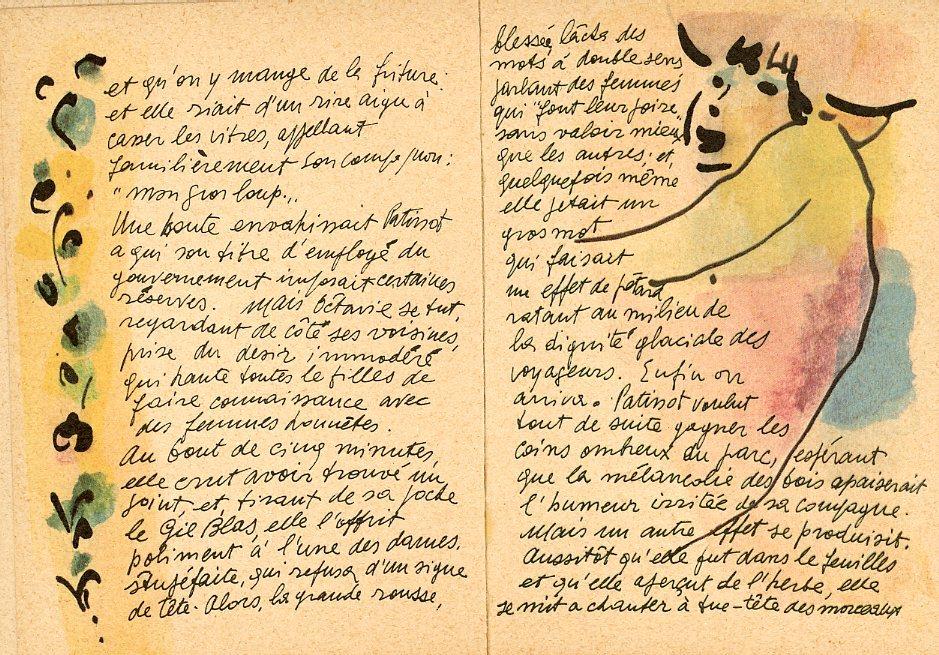 et qu'on y mange de la friture:
et elle riait d'un rire aigu à
casser les vitres, appellant
familièrement son compagnon:
"mon gros loup„.
Une honte envahissait Patissot
a qui son titre d'employé du
gouvernement imposait certaines
réserves. Mais Octavie se tut,
regardant de côté ses voisines,
prise du desir immodéré
qui hante toutes le filles de
faire connaissance avec
des femmes honnêtes.
Au bout de cinq minutes,
elle crut avoir trouvé un
joint, et, tirant de sa poche
le Gil Blas, elle l'offrit
poliment à l'une des dames,
stupéfaite, qui refusa d'un signe
de tête. Alors, la grande rousse,
blessée, lâcha des
mots à double sens
parlant des femmes
qui "font leur poire„
sans valoir mieux
que les autres; et
quelquefois même
elle jetait un
gros mot
qui faisait
un effet de pétard
ratant au milieu de
la dignité glaciale des
voyageurs. Enfin on
arriva. Patissot voulut
tout de suite gagner les
coins ombreux du parc, espérant
que la mélancolie des bois apaiserait
l'humeur irritée de sa compagne.
Mais un autre effet se produisit.
Aussitôt qu'elle fut dans le feuilles
et qu'elle aperçut de l'herbe, elle
se mit a chanter à tue-tête des morceaux